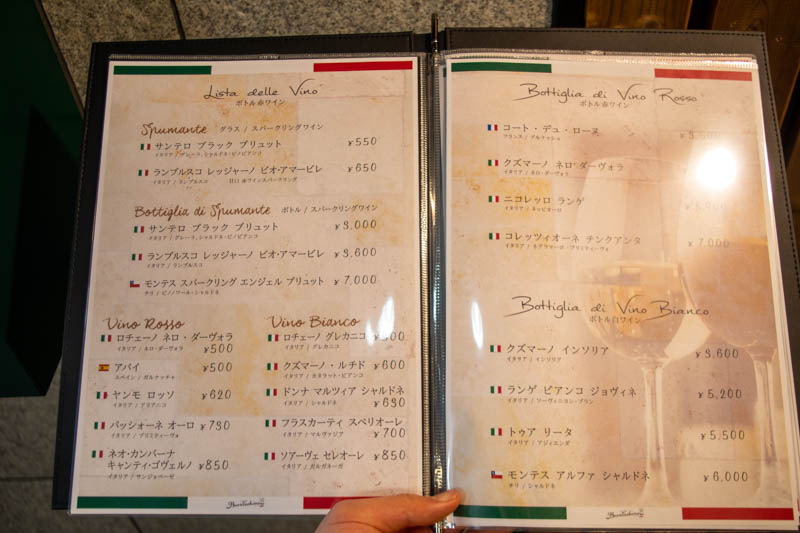 Lista delle Vino
ボトル赤ワイン
Spumante グラス / スパークリングワイン
サンテロ ブラック ブリュット ¥550
イタリア / グレーラ、シャルドネ・ピノビアンコ
ランブルスコ レッジャーノ ビオ・アマービレ ¥650
イタリア / ランブルスコ 甘口 赤ワインスパークリング
Bottiglia di Spumante ボトル / スパークリングワイン
サンテロ ブラック ブリュット ¥3,000
イタリア / グレーラ、シャルドネ・ピノビアンコ
ランブルスコ レッジャーノ ビオ・アマービレ ¥3,600
イタリア / ランブルスコ
モンテス スパークリング エンジェル ブリュット ¥7,000
チリ / ピノノワール・シャルドネ
Vino Rosso
ロチェーノ ネロ・ダーヴォラ
イタリア / ネロ・ダーヴォラ ¥500
アバイ ¥500
スペイン / ガルナッチャ
ヤンモ ロッソ ¥620
イタリア / アリアニコ
パッシォーネ オーロ ¥730
イタリア / プリミティーヴォ
ネオ・カンパーナ
キャンティ・ゴヴェルノ ¥850
イタリア / サンジョベーゼ
Vino Bianco
ロチェーノ グレカニコ
イタリア / グレカニコ
クズマーノ・ルチド ¥600
イタリア / カタラット・ビアンコ
ドンナ マルツィア シャルドネ
イタリア / シャルドネ ¥630
フラスカーティ スペリオーレ
イタリア / マルヴァジア ¥700
ソアーヴェ セレオーレ ¥850
イタリア / ガルガネーガ
Bottiglia di Vino Rosso
ボトル赤ワイン
コート・デュ・ローヌ
フランス / グルナッシュ
クズマーノ ネロ・ダーヴォラ
イタリア / ネロ・ダーヴォラ
ニコレッロ ランゲ
イタリア / ネッビオーロ
コレッツィオーネ チンクアンタ ¥7,000
イタリア / ネグラマーロ・プリミティーヴォ
Bottiglia di Vino Bianco
ボトル白ワイン
クズマーノ インソリア ¥3,600
イタリア / インソリア
ランゲ ビアンコ ジョヴィネ ¥5,200
イタリア / ソーヴィニヨン・ブラン
トゥア リータ ¥5,500
イタリア / アジィエンダ
モンテス アルファ シャルドネ ¥6,000
チリ / シャルドネ